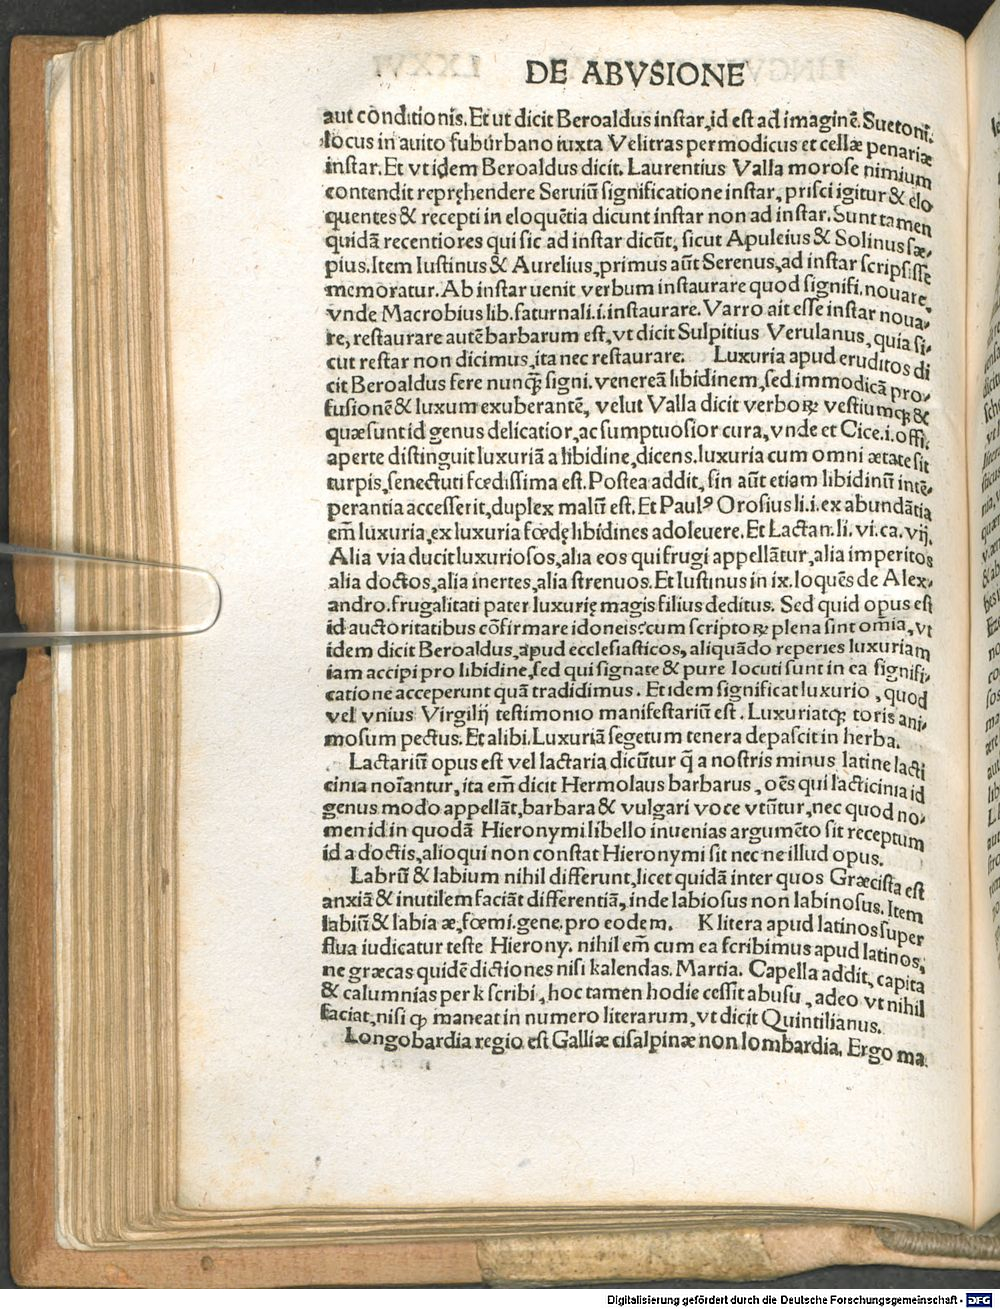 DE ABVSIONE
aut cōnditionis. Et ut dicit Beroaldus instar, id est ad imaginē. Suetoni.
locus in auito suburbano iuxta Velitras permodicus et cellæ penariæ
instar. Et vt idem Beroaldus dicit. Laurentius Valla morose nimium
contendit repręhendere Seruiū significatione instar, prisci igitur & elo
quentes & recepti in eloquētia dicunt instar non ad instar. Sunt tamen
quidā recentiores qui sic ad instar dicūt, sicut Apuleius & Solinus sæ⸗
pius. Item Iustinus & Aurelius, primus aūt Serenus, ad instar scripsisse
memoratur. Ab instar uenit verbum instaurare quod signifi. nouare
vnde Macrobius lib. saturnali. i. instaurare. Varro ait esse instar noua⸗
re, restaurare autē barbarum est, vt dicit Sulpitius Verulanus, quia si⸗
cut restar non dicimus, ita nec restaurare. Luxuria apud eruditos di
cit Beroaldus fere nunꝙ̄ signi. venereā libidinem, sed immodicā pro⸗
fusionē & luxum exuberantē, velut Valla dicit verboꝝ vestiumqꝫ &
quæ sunt id genus delicatior, ac sumptuosior cura, vnde et Cice. i. offi.
aperte distinguit luxuriā a libidine, dicens. luxuria cum omni ætate sit
turpis, senectuti fœdissima est. Postea addit, sin aūt etiam libidinū intē⸗
perantia accesserit, duplex malū est. Et Paulꝰ Orosius li. i. ex abundātia
em̄ luxuria, ex luxuria fœdę libidines adoleuere. Et Lactan. li. vi. ca. vij.
Alia via ducit luxuriosos, alia eos qui frugi appellātur, alia imperitos
alia doctos, alia inertes, alia strenuos. Et Iustinus in ix. loquēs de Alex⸗
andro. frugalitati pater luxurię magis filius deditus. Sed quid opus est
id auctoritatibus cōfirmare idoneis: cum scriptoꝝ plena sint omīa, vt
idem dicit Beroaldus, apud ecclesiasticos, aliquādo reperies luxuriam
iam accipi pro libidine, sed qui signate & pure locuti sunt in ea signifi⸗
catione acceperunt quā tradidimus. Et idem significat luxurio, quod
vel vnius Virgilij testimonio manifestariū est. Luxuriatqꝫ toris ani⸗
mosum pectus. Et alibi. Luxuriā segetum tenera depascit in herba.
Lactariū opus est vel lactaria dicūtur q̄ a nostris minus latine lacti
cinia noīantur, ita em̄ dicit Hermolaus barbarus, oēs qui lacticinia id
genus modo appellāt, barbara & vulgari voce vtūtur, nec quod no⸗
men id in quodā Hieronymi libello inuenias argumēto sit receptum
id a doctis, alioqui non constat Hieronymi sit nec ne illud opus.
Labrū & labium nihil differunt, licet quidā inter quos Græcista est
anxiā & inutilem faciāt differentiā, inde labiosus non labinosus. Item
labiū & labia æ, fœmi. gene. pro eodem. K litera apud latinos super
flua iudicatur teste Hierony. nihil em̄ cum ea scribimus apud latinos,
ne græcas quidē dictiones nisi kalendas. Martia. Capella addit, capita
& calumnias per k scribi, hoc tamen hodie cessit abusu, adeo vt nihil
faciat, nisi ꝙ maneat in numero literarum, vt dicit Quintilianus.
Longobardia regio est Galliæ cisalpinæ non lombardia. Ergo ma⸗
Digitalisierung gefördert durch die Deutsche Forschungsgemeinschaft - DFG